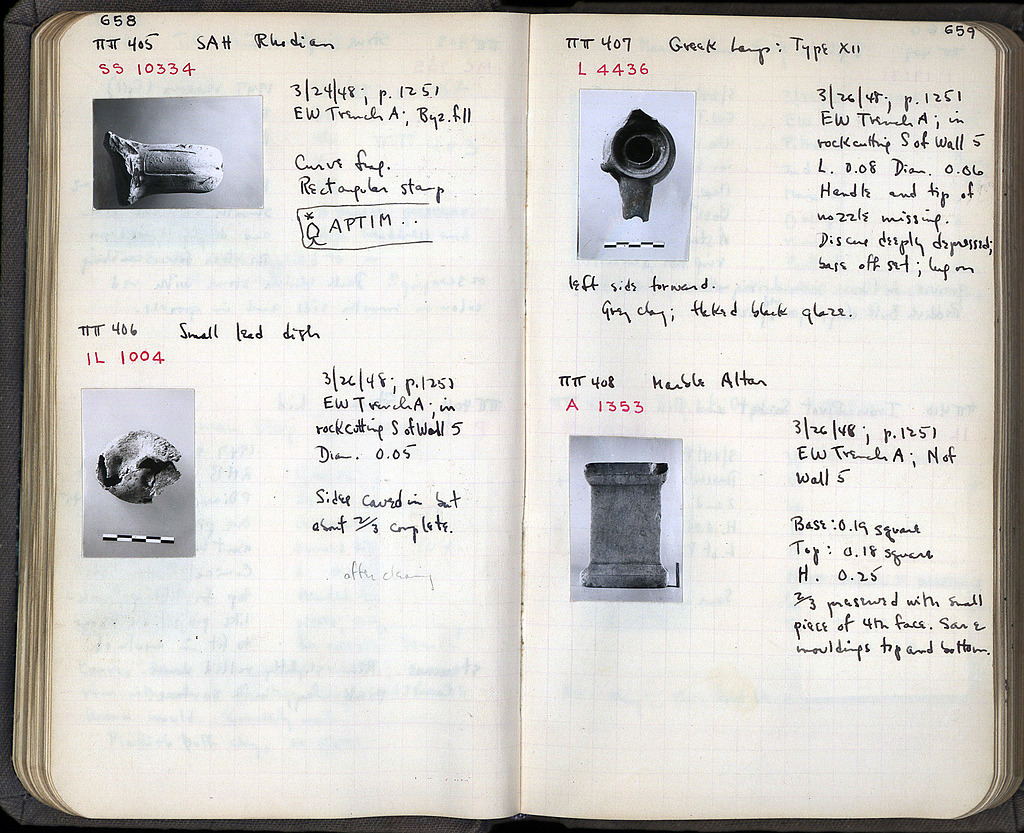 658
ΠΠ 405 SAH Rhodian
SS 10334
3/24/48; p. 1251
EW Trench A; Byz. fill
Curve frag.
Rectangular stamp
* ΑΡΤΙΜ
ΠΠ 406 Small lead dish
IL 1004
3/26/48; p. 1251
EW Trench A; in
rockcutting S of Wall 5
Diam. 0.05
Sides caved in but
about 2/3 complete.
after cleaning
659
ΠΠ 407 Greek Lamp: Type XII
L 4436
3/26/48; p. 1251
EW Trench A; in
rockcutting S of Wall 5
L. 0.08 Diam. 0.06
Handle and tip of
nozzle missing.
Discus deeply depressed;
base off set; lug on
left side forward.
Grey clay; flaked black glaze.
ΠΠ 408 Marble Altar
A 1353
3/26/48; p. 1251
EW Trench A; N of
Wall 5
Base: 0.19 square
Top: 0.18 square
H. 0.25
2/3 preserved with small
piece of 4th face. Same
mouldings top and bottom.